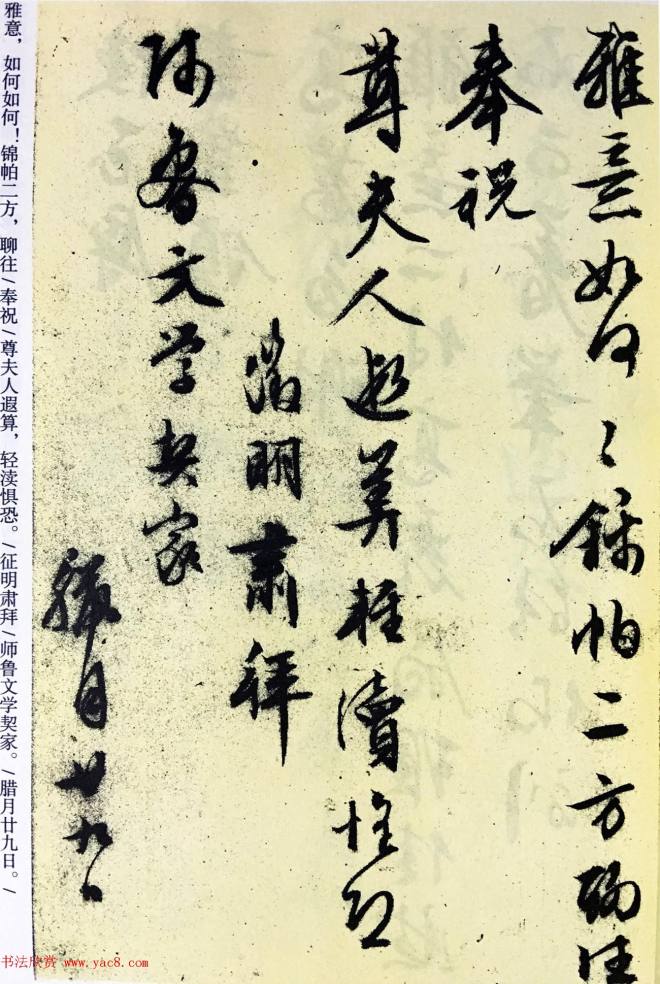 雅意如何〻锦帕二方聊往
奉祝
尊夫人遐算轻渎惧恐
征明肃拜
师鲁文学契家
腊月廿九日
雅意，如何如何！锦帕二方，聊往/奉祝/尊夫人遐算，轻渎惧恐。/征明肃拜/师鲁文学契家。/腊月廿九日。/
书法欣赏 www.yac8.com